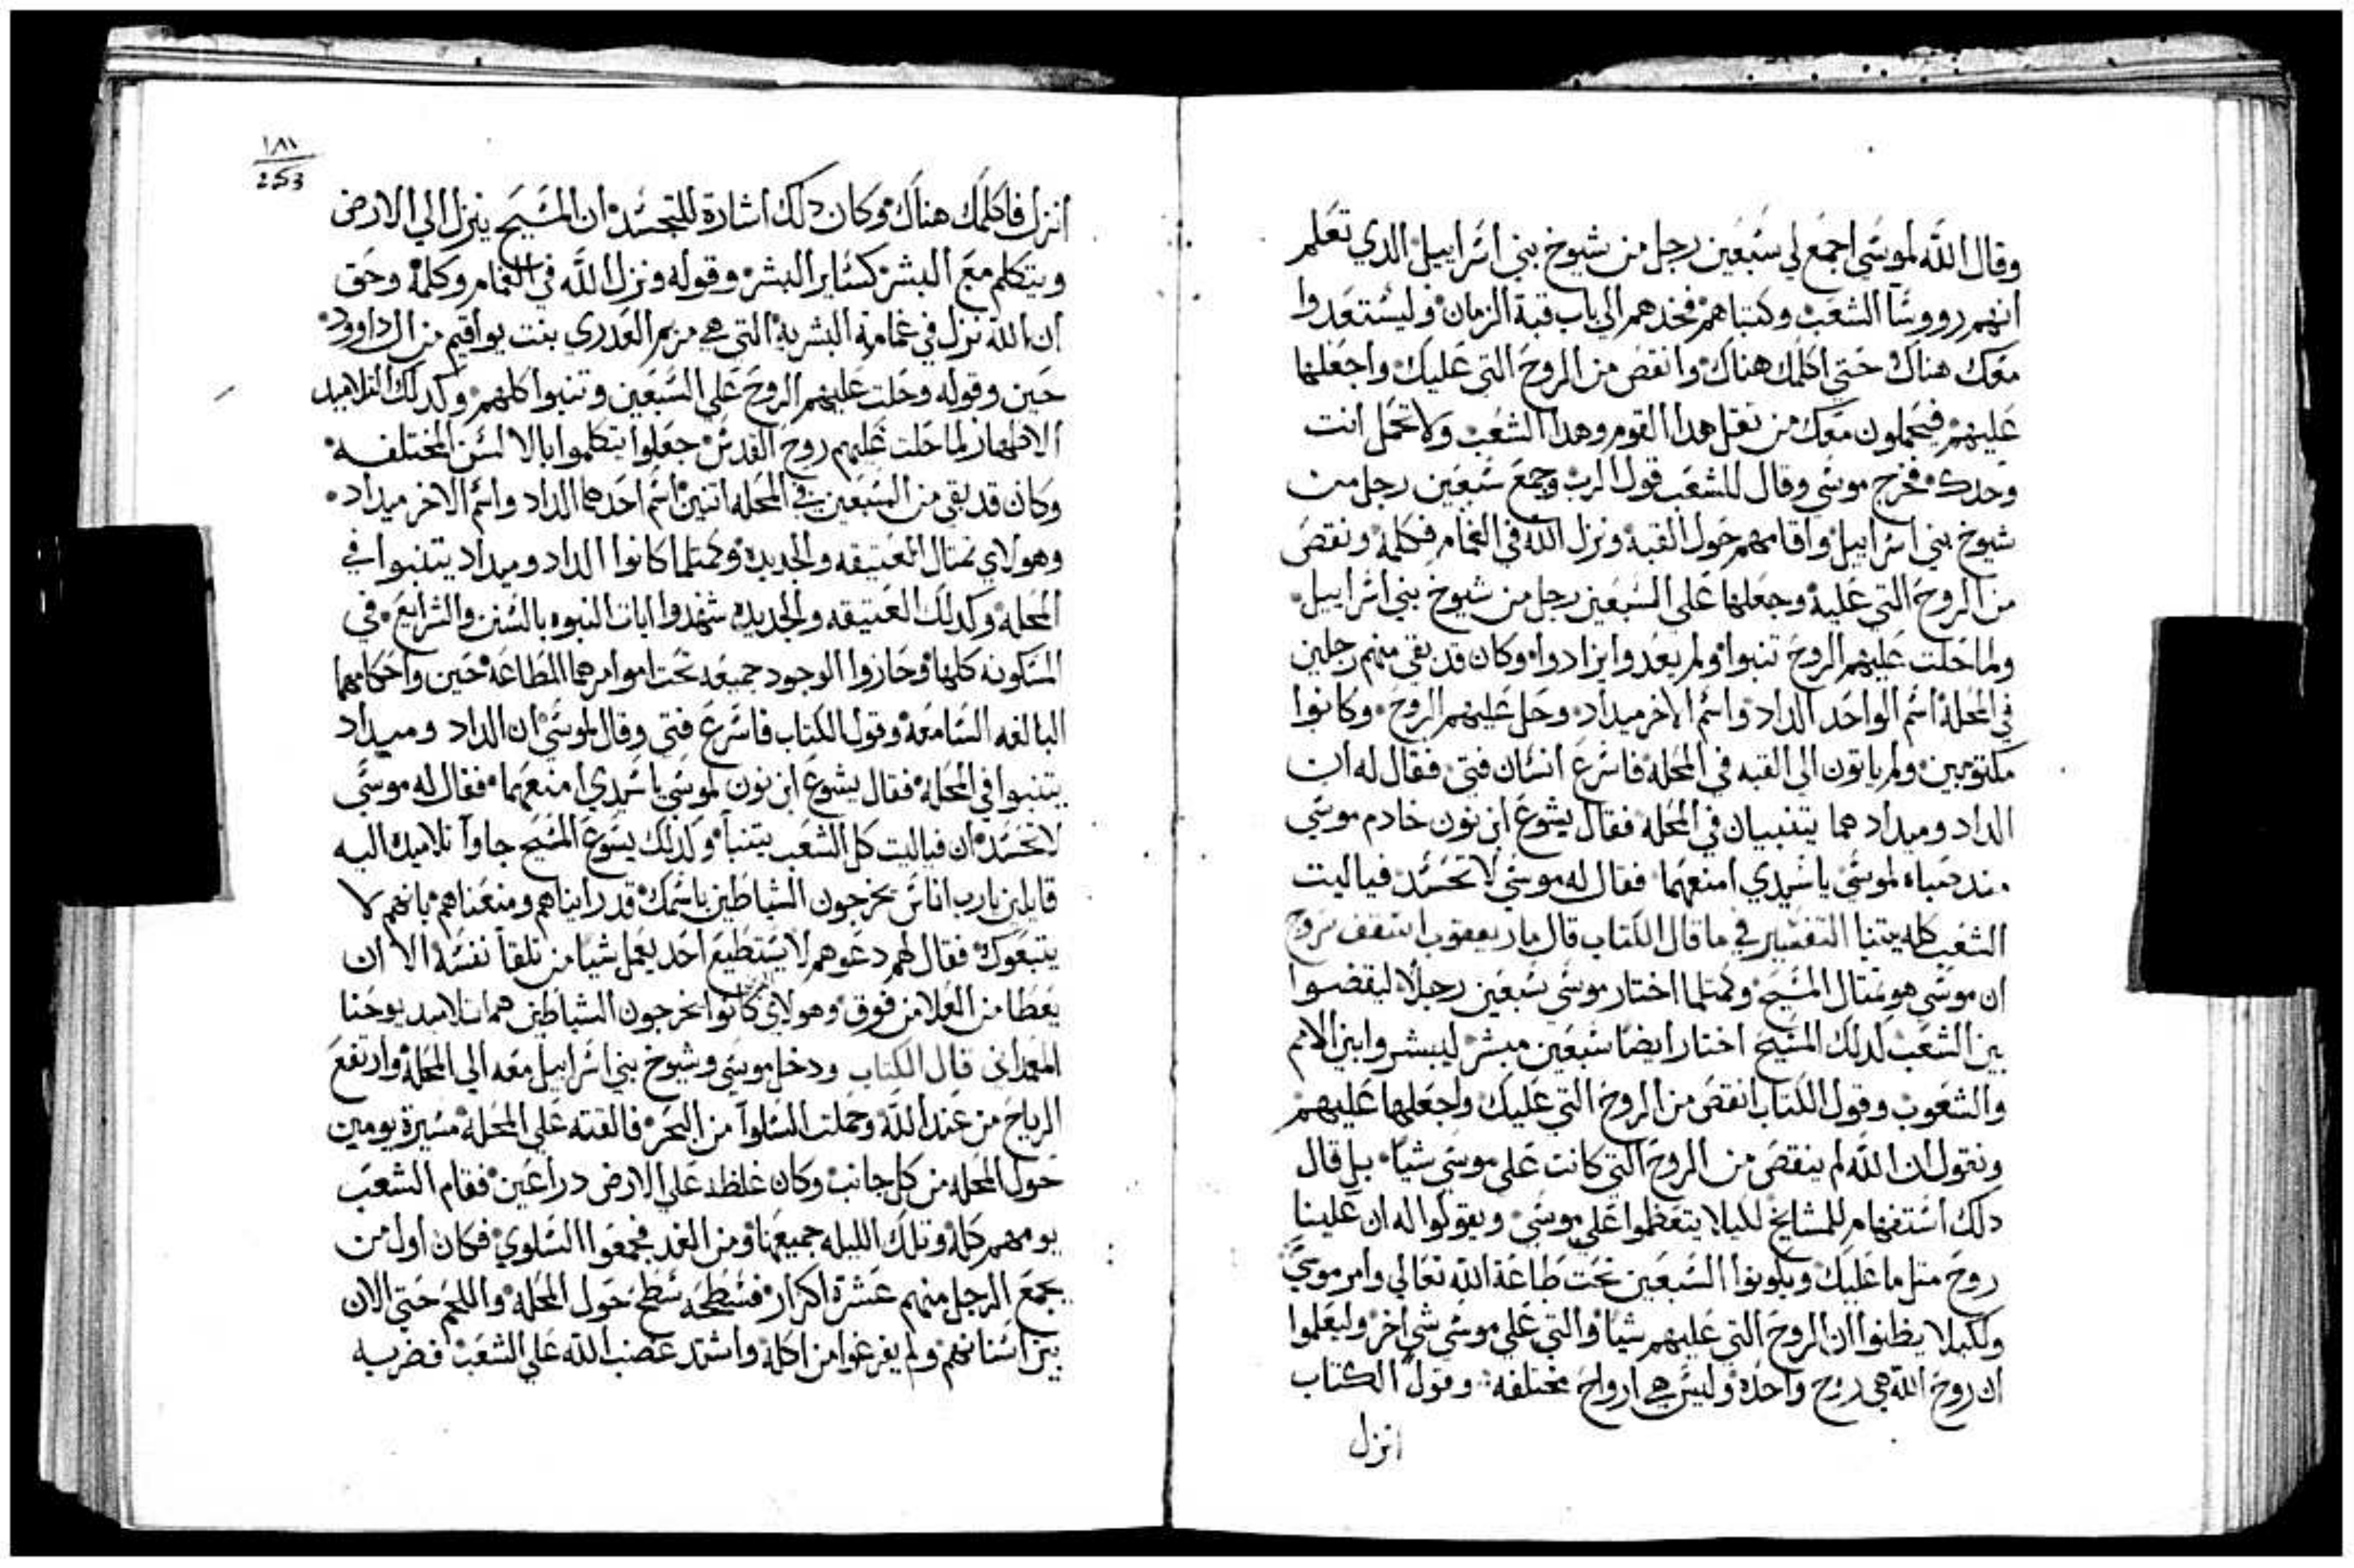 وقال الله لموسي اجمع لي سبعين رجل من شيوخ بني اسراييل الدي تعلم
انهم رووسا الشعب وكتباهم فخدهم الي باب قبة الزمان وليستعدوا
معك هناك حتي اكلمك هناك وانقص من الروح التي عليك واجعلها
عليهم فيحملون معك من تقل هدا القوم وهدا الشعب ولا تحمل انت
وحدك فخرج موسي وقال للشعب قول الرب وجمع سبعين رجل من
شيوخ بني اسراييل واقامهم حول القبة ونزل الله في الغمام فكلمه ونقص
من الروح التي عليه وجعلها علي السبعين رجل من شيوخ بني اسراييل
ولما حلت عليهم الروح تنبوا ولم يعدوا يزادوا وكان قد بقي منهم رجلين
في المحلة اسم الواحد الداد واسم الاخر ميداد وحل عليهم الروح وكانوا
مكتوبين ولم ياتون الي القبه في المحلة فاسرع انسان فتي فقال له ان
الداد وميداد هما يتنبيان في المحلة فقال يشوع ابن نون خادم موسي
مند صباه لموسي ياسيدي امنعهما فقال له موسي لا تحسد فياليت
الشعب كله يتنبا التفسير في ما قال الكتاب قال مار يعقوب اسقف سروج
ان موسي هو متال المسيح وكمتلما اختار موسي سبعين رجلا ليقضوا
بين الشعب لدلك المسيح اختار ايضا سبعين مبشر ليبشروا بين الامم
والشعوب وقول الكتاب انقص من الروح التي عليك واجعلها عليهم
ونقول ان الله لم ينقص من الروح التي كانت علي موسي شيا بل قال
دلك استفهام للمشايخ لكيلا يتعظموا علي موسي ويقولوا له ان علينا
روح متل ما عليك ويكونوا السبعين تحت طاعة الله تعالي وامر موسي
ولكيلا يظنوا ان الروح التي عليهم شيا والتي علي موسي شي اخر وليعلموا
ان روح الله هي روح واحدة وليس هي ارواح مختلفه وقول الكتاب
انزل
١٨١
253
انزل فاكلمك هناك وكان دلك اشارة للتجسد ان المسيح ينزل الي الارض
ويتكلم مع البشر كساير البشر وقوله ونزل الله في الغمام وكلمه وحق
ان الله نزل في غمامة البشرية التي هي مريم العدري بنت يواقيم من ال داوود
حين وقوله وحلت عليهم الروح علي السبعين وتنبوا كلهم وكدلك التلاميد
الاطهار لما حلت عليهم روح القدس جعلوا يتكلموا بالالسن المختلفه
وكان قد بقي من السبعين في المحله اتنين اسم احدهما الداد واسم الاخر ميداد
وهولاي متال العتيقه والجديدة وكمتلما كانوا الداد وميداد يتنبوا في
المحلة وكدلك العتيقه والجديده شهدوا ايات النبوه بالسنن والشرايع في
المسكونه كلها وحازوا الوجود جميعه تحت اموامرهما المطاعة حين واحكامهما
البالغه السامعة وقول الكتاب فاسرع فتي وقال لموسي ان الداد وميداد
يتنبوا في المحلة فقال يشوع ابن نون لموسي ياسيدي امنعهما فقال له موسي
لا تحسد ان فياليت كل الشعب يتنبا ولدلك يسوع المسيح جاوا تلاميده اليه
قايلين يارب اناس يخرجون الشياطين باسمك قد رايناهم ومنعناهم بانهم لا
يتبعوك فقال لهم دعوهم لا يستطيع احد يعمل شيا من تلقا نفسه الا ان
يعطا من العلا من فوق وهولاي كانوا يخرجون الشياطين هم تلاميد يوحنا
المعمدانى قال الكتاب ودخل موسي وشيوخ بني اسراييل معه الي المحلة وارتفع
الرياح من عند الله وحملت السلوا من البحر فالقته علي المحلة مسيرة يومين
حول المحله من كل جانب وكان غلظه علي الارض دراعين فقام الشعب
يومهم كله وتلك الليله جميعها ومن الغد فجمعوا السلوي فكان اول من
يجمع الرجل منهم عشرة اكرار فسطحه سطح حول المحلة واللحم حتي الان
بين اسنانهم ولم يفرغوا من اكله واشتد غضب الله علي الشعب فضربه